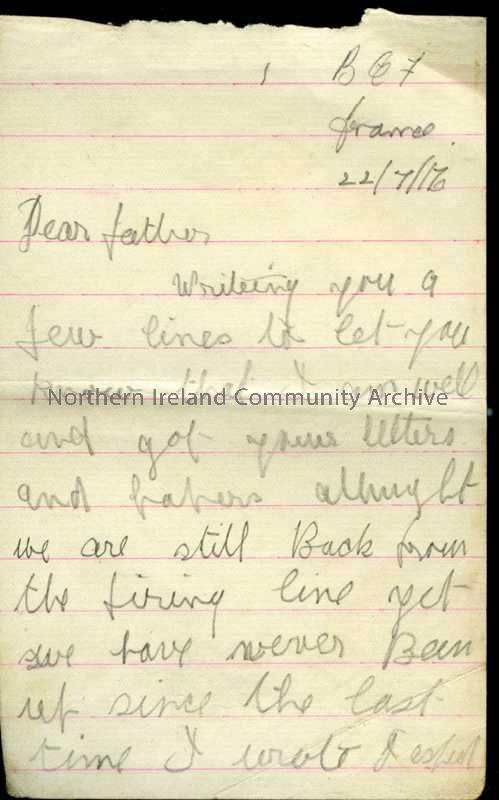 1 BEF
france
22/7/16
Dear father
Writeing you a
few lines to let you
know that I am well
Northern Ireland Community Archive
and got your letters
and papers allright
we are still Back from
the fireing line yet
we have never Been
up since the last
time I wrote I expect